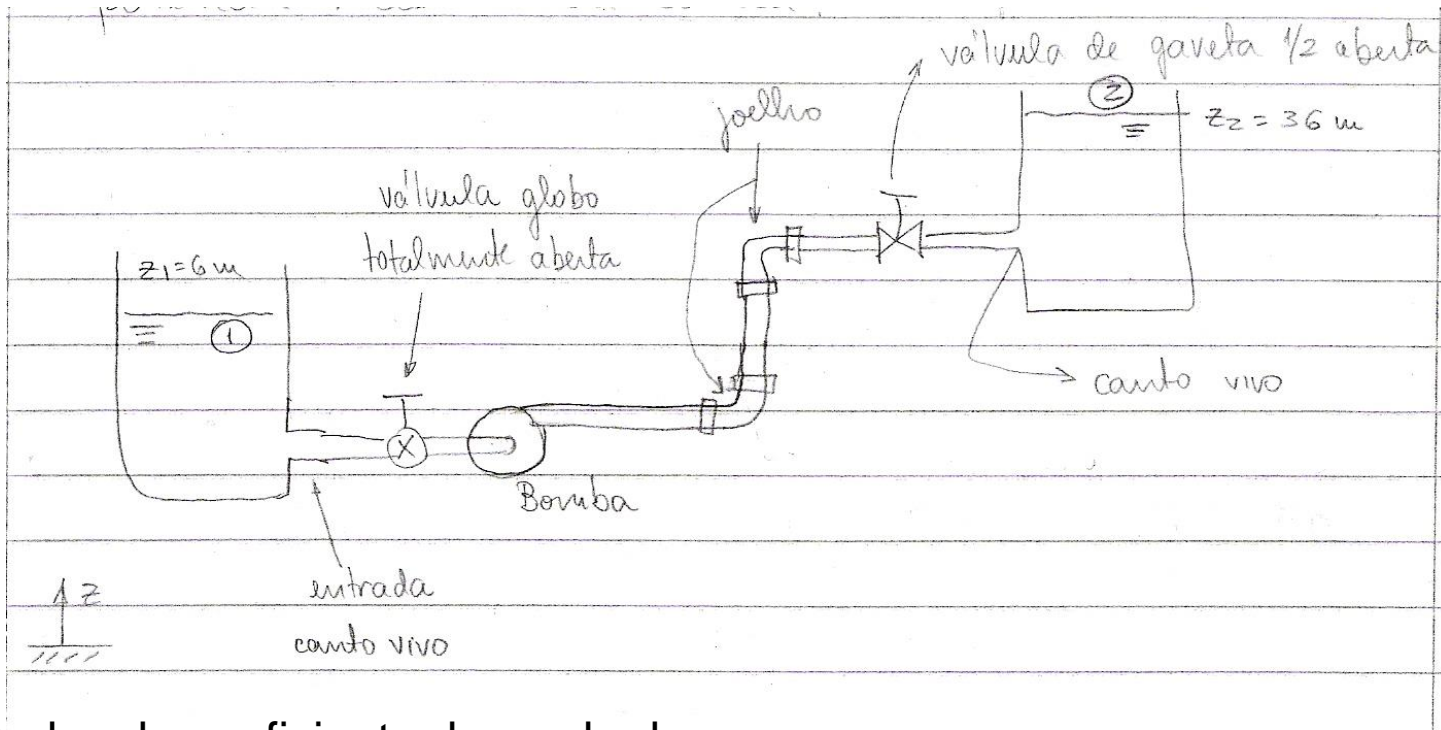 válvula de gaveta 1/2 aberta
joelho
②
z₂ = 36 m
válvula globo
totalmente aberta
z₁ = 6 m
①
canto vivo
X
Bomba
z
entrada
canto vivo